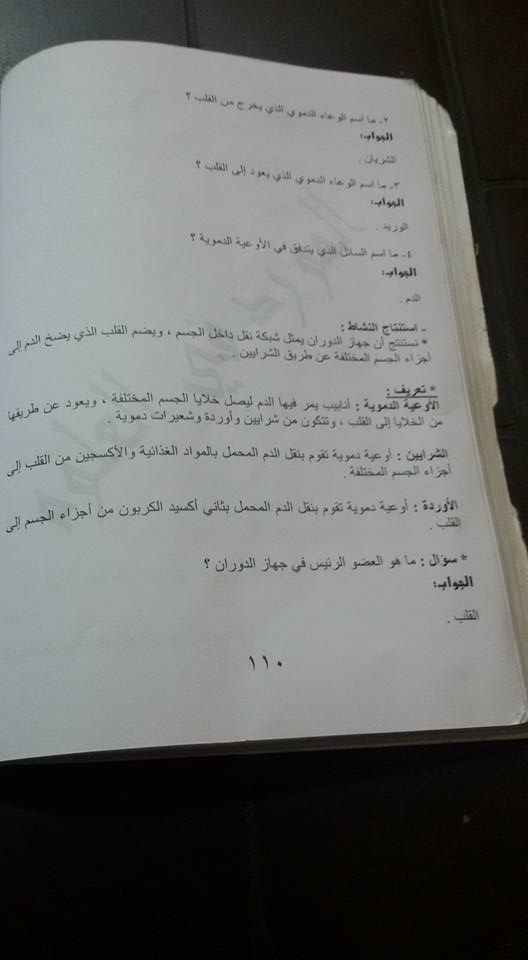 ٢- ما اسم الوعاء الدموي الذي يخرج من القلب ؟
الجواب:
الشريان .
٣- ما اسم الوعاء الدموي الذي يعود إلى القلب ؟
الجواب:
الوريد .
٤- ما اسم السائل الذي يتدفق في الأوعية الدموية ؟
الجواب:
الدم .
- استنتاج النشاط :
* نستنتج أن جهاز الدوران يمثل شبكة نقل داخل الجسم ، ويضم القلب الذي يضخ الدم إلى
أجزاء الجسم المختلفة عن طريق الشرايين .
* تعريف :
الأوعية الدموية : أنابيب يمر فيها الدم ليصل خلايا الجسم المختلفة ، ويعود عن طريقها
من الخلايا إلى القلب ، وتتكون من شرايين وأوردة وشعيرات دموية .
الشرايين : أوعية دموية تقوم بنقل الدم المحمل بالمواد الغذائية والأكسجين من القلب إلى
أجزاء الجسم المختلفة .
الأوردة : أوعية دموية تقوم بنقل الدم المحمل بثاني أكسيد الكربون من أجزاء الجسم إلى
القلب .
* سؤال : ما هو العضو الرئيس في جهاز الدوران ؟
الجواب:
القلب .
١١٠
المورد في العلوم